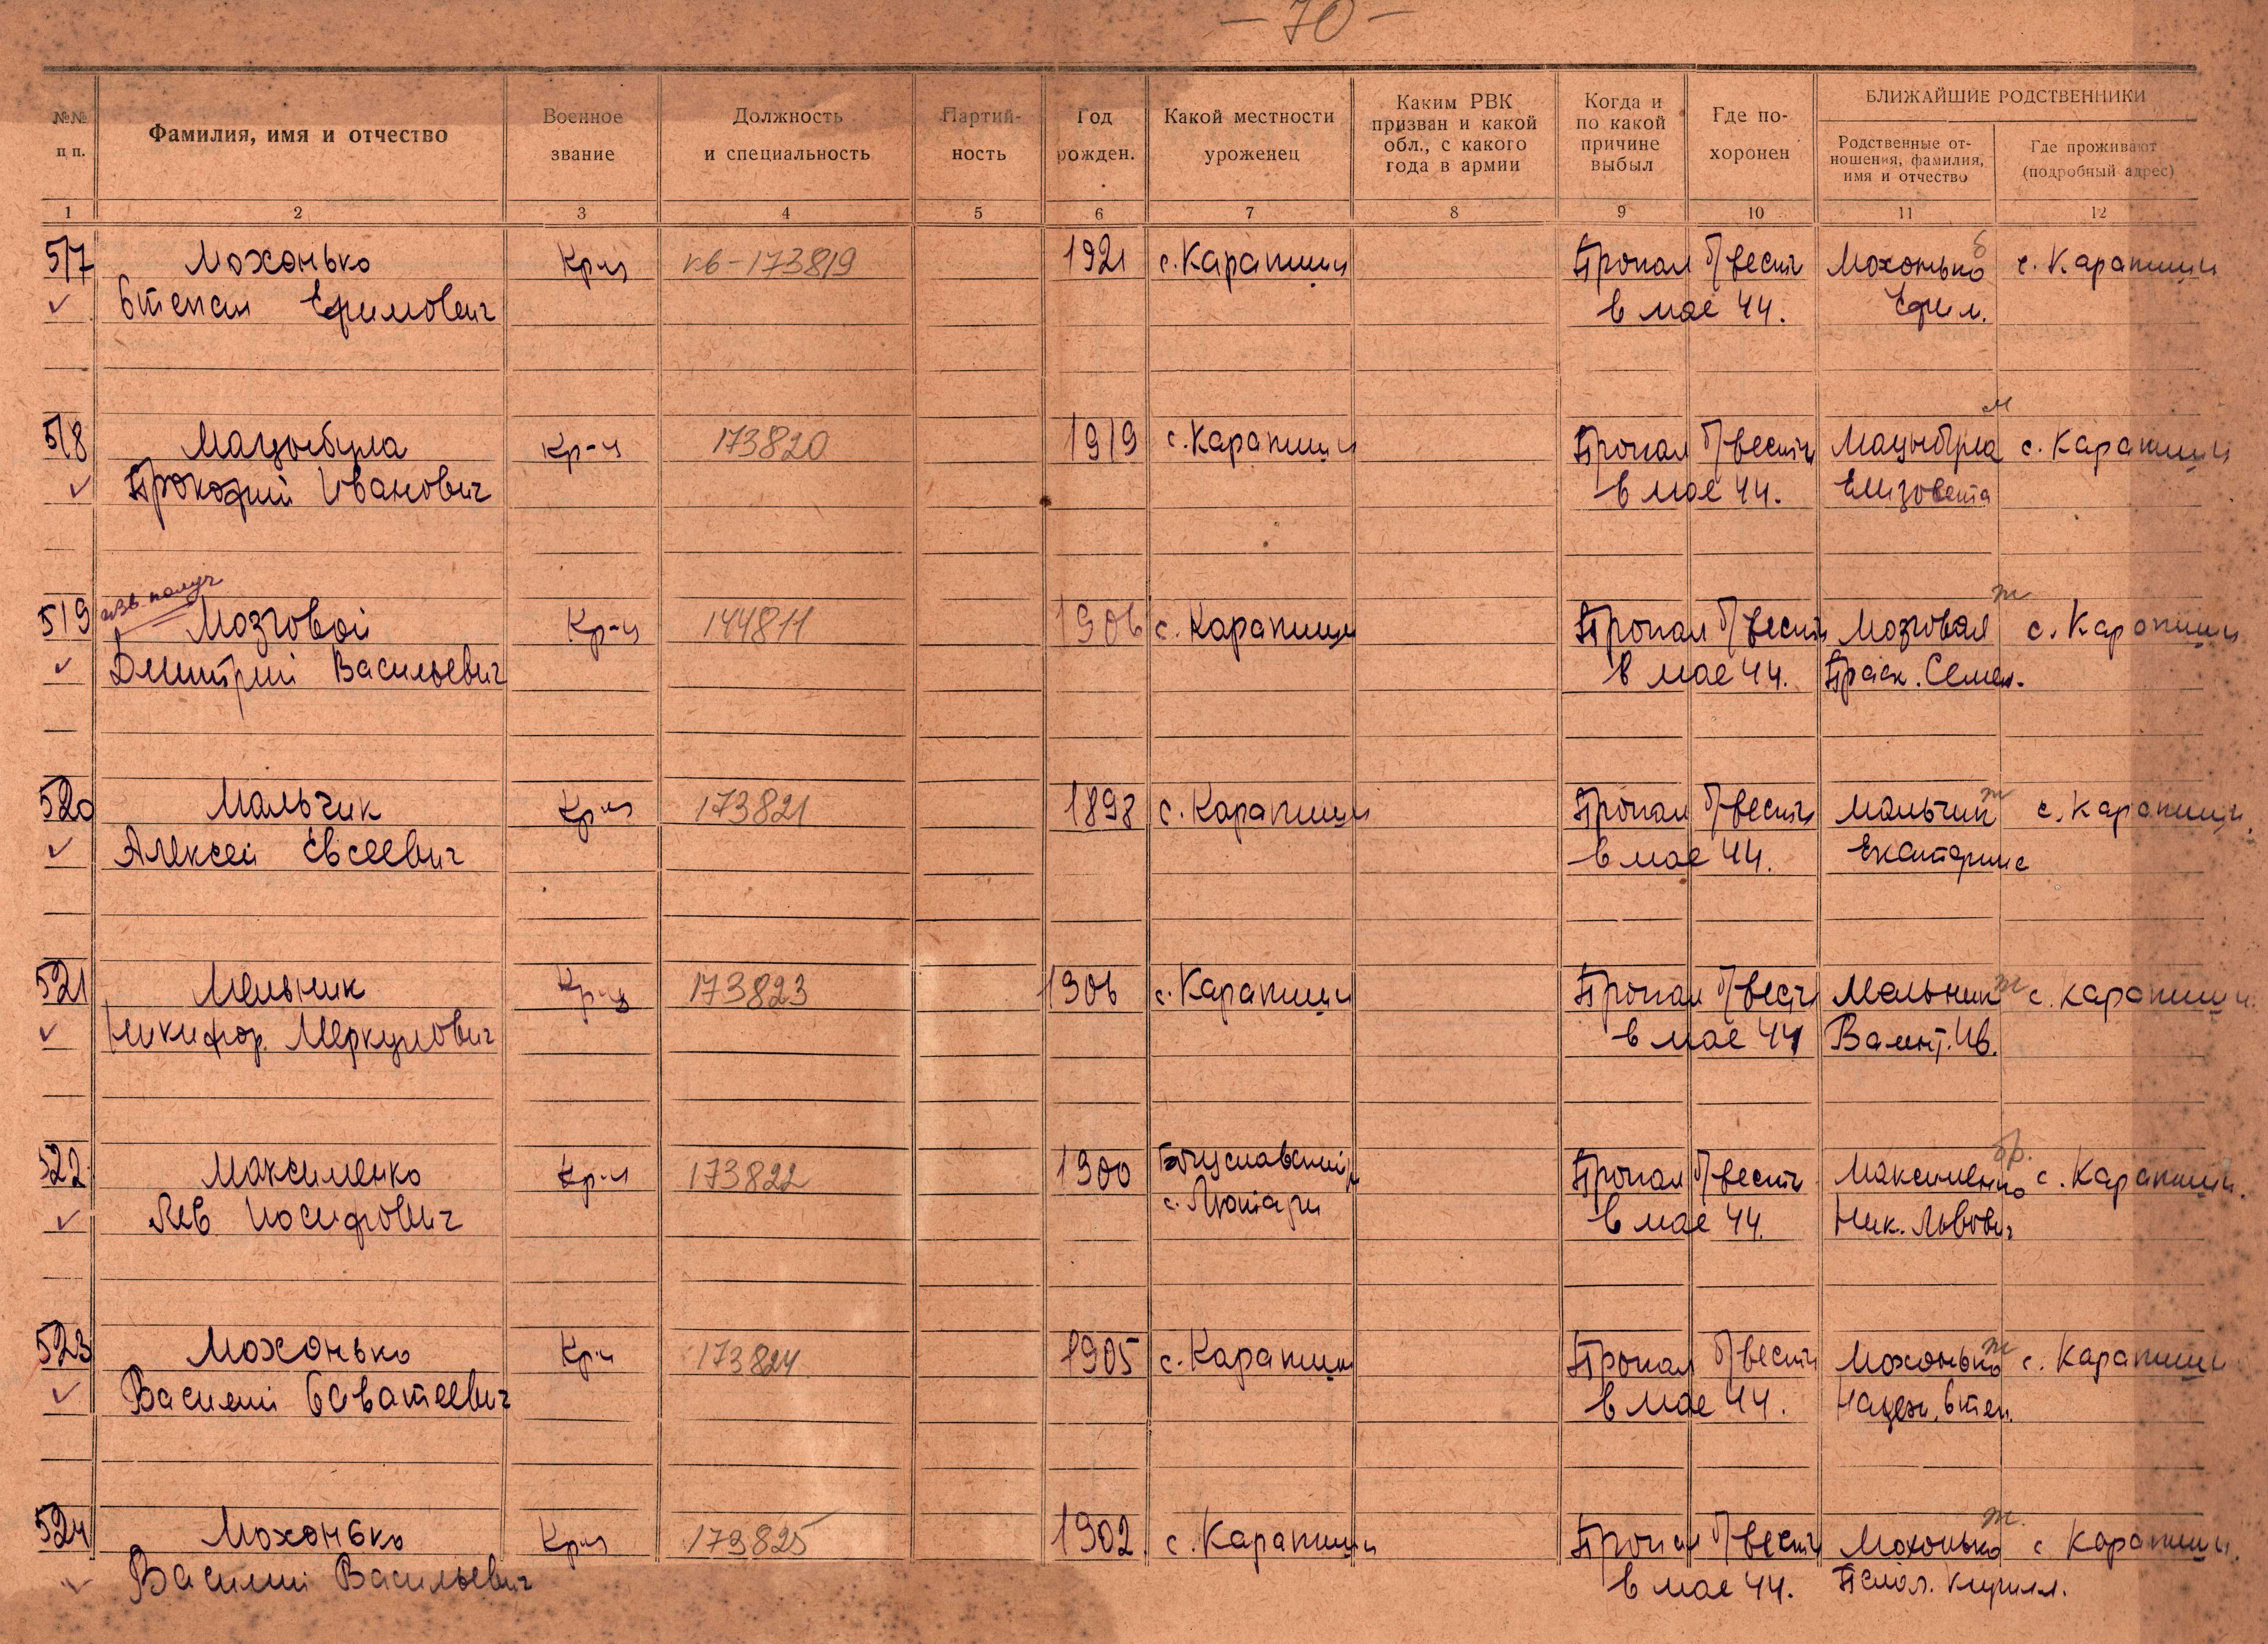 — 70 —
№№ п п.
Фамилия, имя и отчество
Военное звание
Должность и специальность
Партий- ность
Год рожден.
Какой местности уроженец
Каким РВК призван и какой обл., с какого года в армии
Когда и по какой причине выбыл
Где по- хоронен
БЛИЖАЙШИЕ РОДСТВЕННИКИ
Родственные от- ношения, фамилия, имя и отчество
Где проживают (подробный адрес)
1 2 3 4 5 6 7 8 9 10 11 12
517 Мохонько Кр-ц кв-173819 1921 с. Карапиши Пропал б/вести Мохонько б с. Карапиши
Степан Ефимович в мае 44. Ефим.
518 Кр-ц 173820 1919 с. Карапиши Пропал б/вести м с. Карапиши
Прокофий Иванович в мае 44. Елизовета
изв. получ
519 Мозговой Кр-ц 144811 1906 с. Карапиши Пропал б/вести Мозговая ж с. Карапиши
Дмитрий Васильевич в мае 44. Праск. Семен.
520 Мальчик Кр-ц 173821 1898 с. Карапиши Пропал б/вести Мальчик ж с. Карапиши.
Алексей Евсеевич в мае 44. Екатарина
521 Мельник Кр-ц 173823 1906 с. Карапиши Пропал б/вести Мельник ж с. Карапиши.
Никифор. Меркулович в мае 44 Ив.
522 Максименко Кр-ц 173822 1900 Богуславский р Пропал б/вести Максименко бр. с. Карапиши.
Лев Иосифович с. в мае 44. Ник. Львович
523 Мохонько Кр-ц 173824 1905 с. Карапиши Пропал б/вести Мохонько ж с. Карапиши
Василий Саватеевич в мае 44. Надеж. Степ.
524 Мохонько Кр-ц 173825 1902 с. Карапиши Пропал б/вести Мохонько ж. с Карапиши.
Василий Васильевич в мае 44. Кирилл.